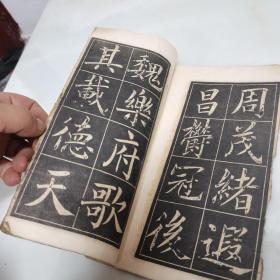 周茂緒遐
昌欝冠後
魏樂府歌
其載德天